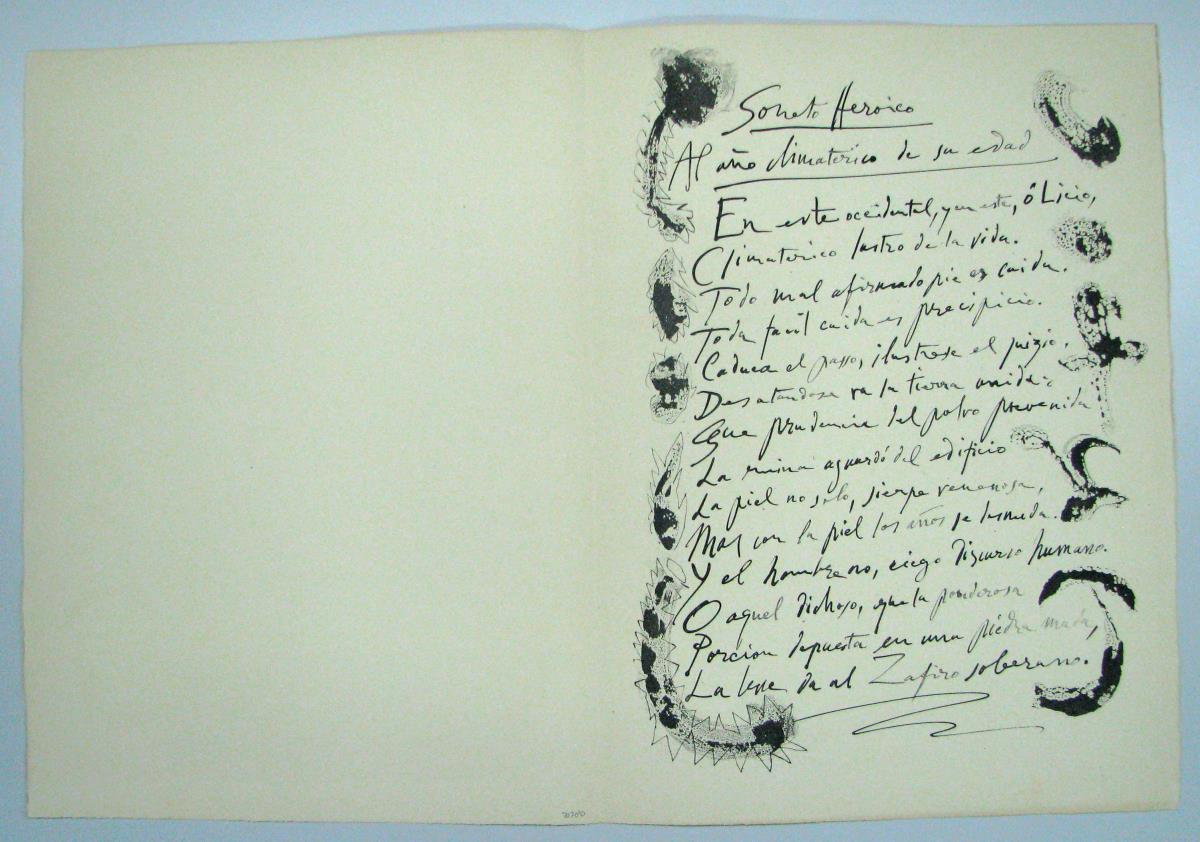 Soneto Heroico
Al año climaterico de su edad
En este occidental, y en este, ó Licio,
Climaterico lustro de la vida.
Todo mal afirmado pie es caida.
Toda facil caida es precipicio.
Caduca el passo, ilustrese el juizio.
Desatandose va la tierra unida:
Que prudencia del polvo prevenida
La ruina aguardó del edificio
La piel no solo, sierpe venenosa,
Mas con la piel los años se desnuda.
Y el hombre no, ciego discurso humano.
O aquel dichoso, que la ponderosa
Porcion depuesta en una piedra muda,
La leve da al Zafiro soberano.